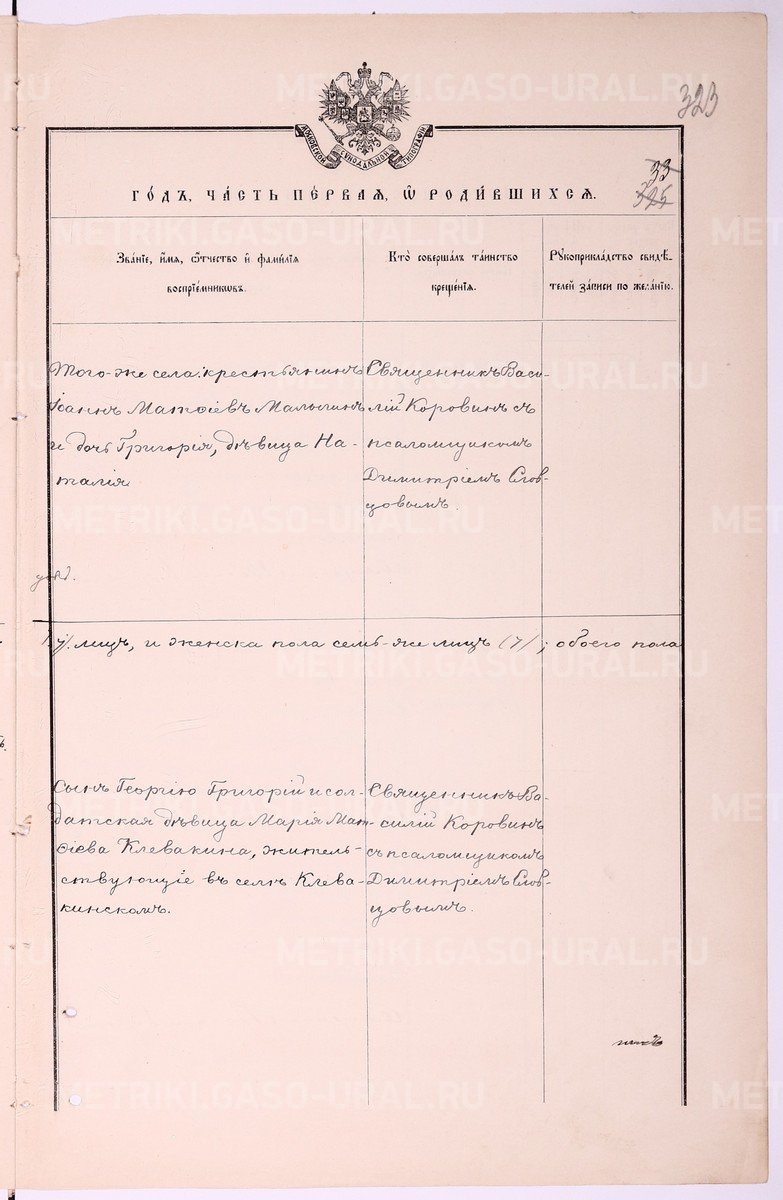 323
МОСКОВСКОЙ СѴНОДАЛЬНОЙ ТИПОГРАФІИ
33
325
ГО́ДЪ, ЧА́СТЬ ПЕ́РВАЯ, Ѿ РОДИ́ВШИХСЯ.
Зва́ніе, и́мя, ѻ́тчество и҆ фами́лія
воспріе́мниковъ.
Кто̀ соверша́лъ та́инство
креще́нія.
Рꙋкоприкла́дство свидѣ́-
телей за́писи по жела́нію.
Того-же села крестьянинъ
Іоаннъ Матѳіевъ Малыгинъ
и дочь Григорія, дѣвица На-
талія
Священникъ Васи-
лій Коровинъ съ
псаломщикомъ
Димитріемъ Слов-
цовымъ.
7/ лицъ, и женска пола семь-же лицъ (7/; обоего пола
Сынъ Георгію Григорій и сол-
датская дѣвица Марія Мат-
ѳіева Клевакина, житель-
ствующіе въ селѣ Клева-
кинскомъ.
Священникъ Ва-
силій Коровинъ
съ псаломщикомъ
Димитріемъ Слов-
цовымъ.
METRIKI.GASO-URAL.RU